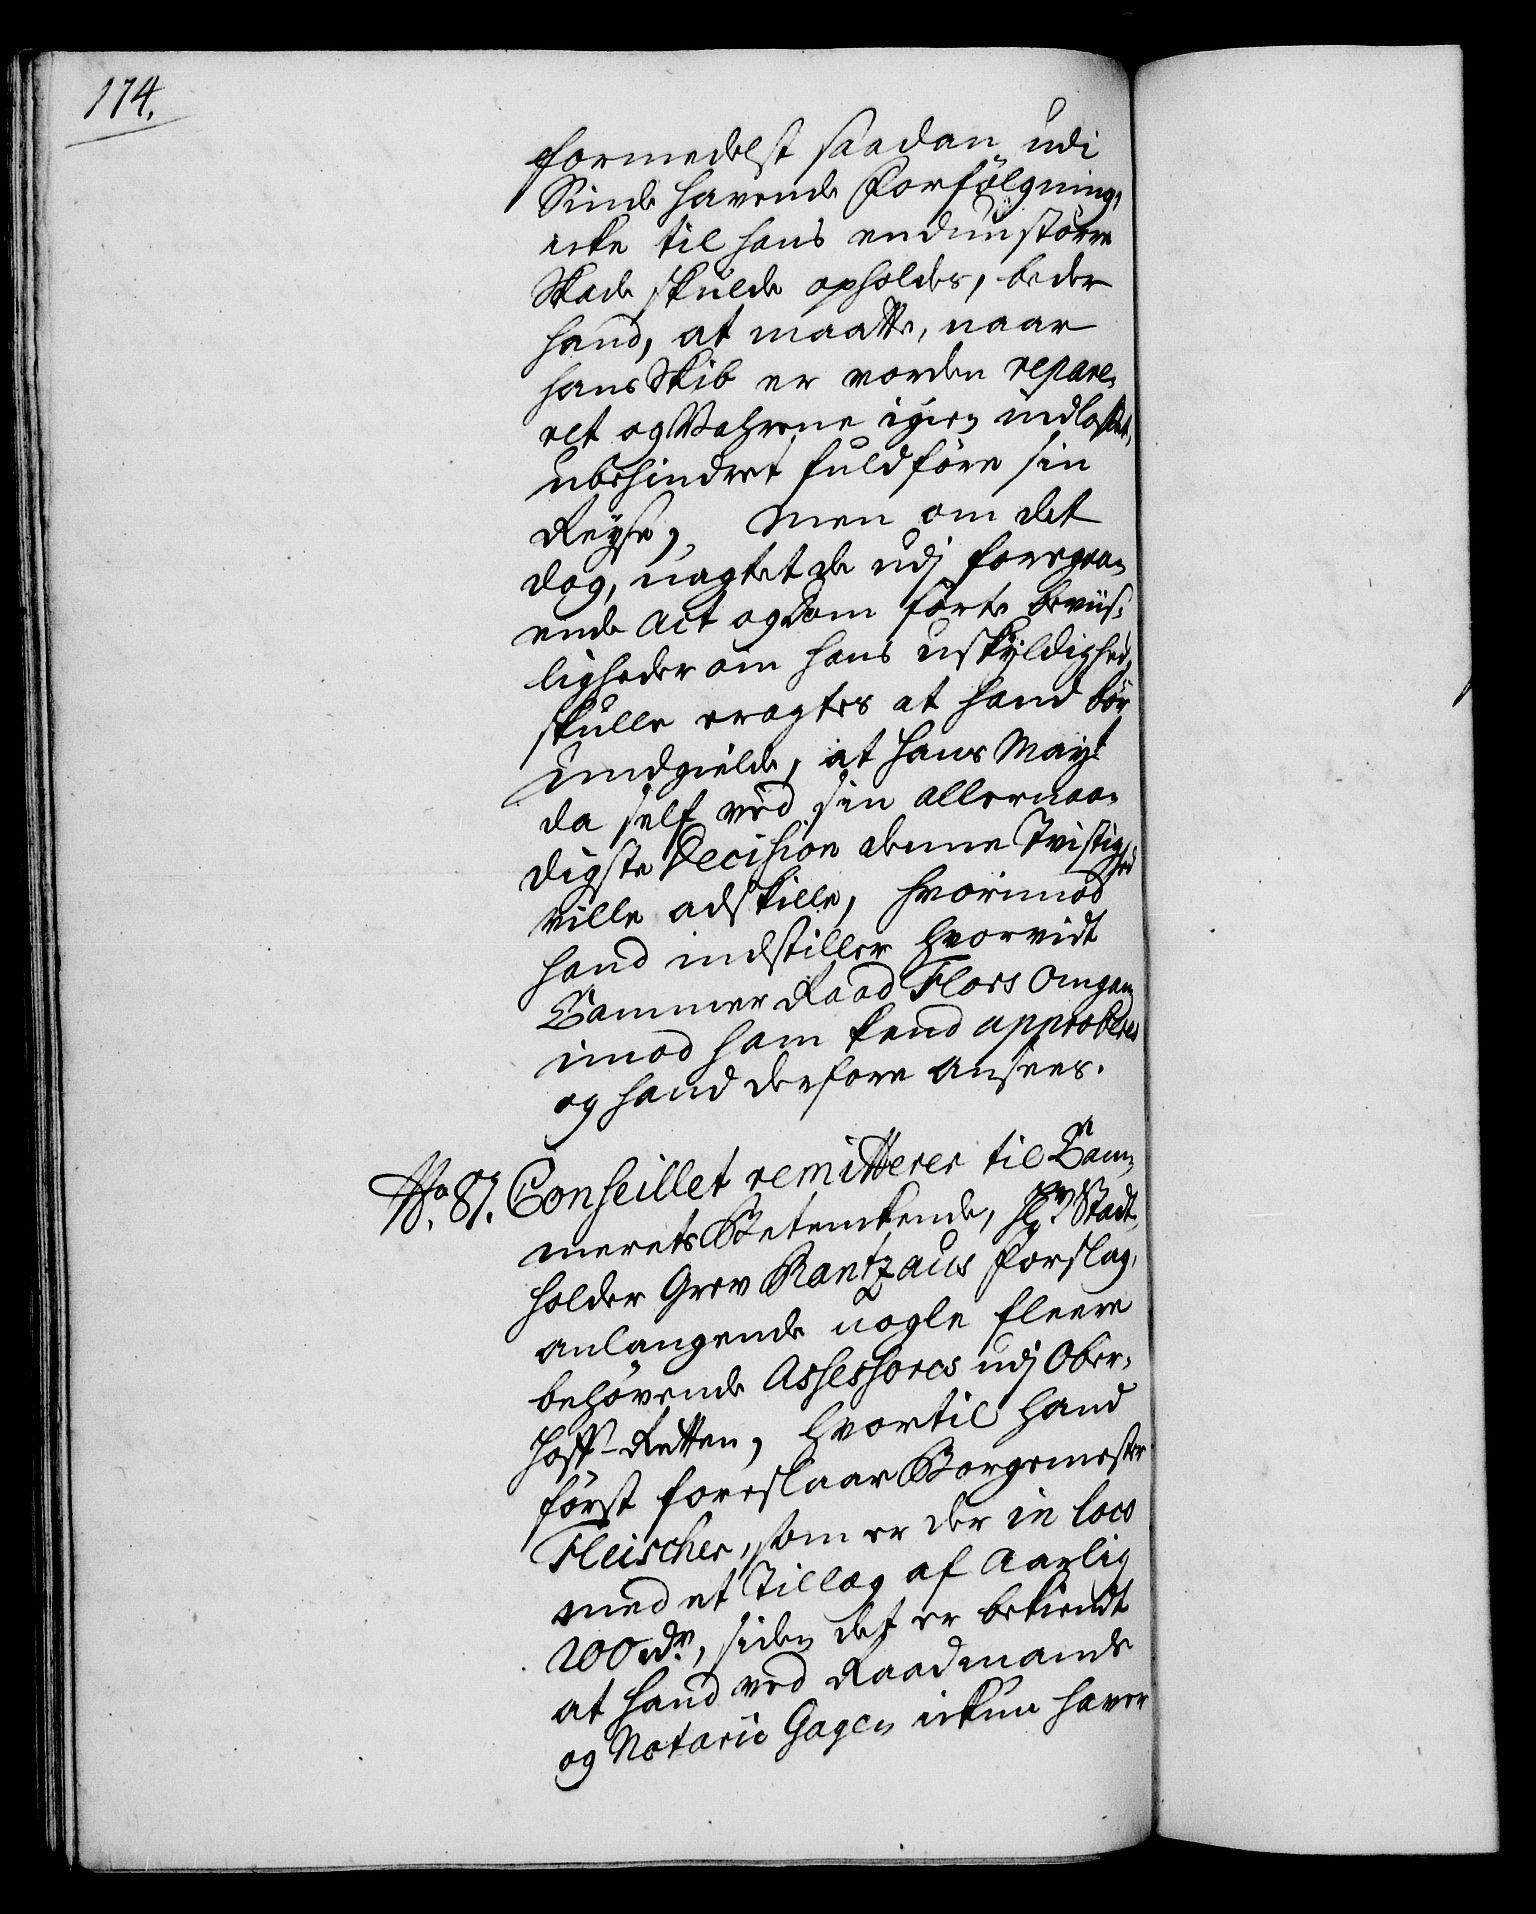 174.
formedelst saadan udi
Sinde havende Forfölgning,
icke til hans endnu större
Skade skulde opholdes, beder
hand, at maatte, naar
hans Skib er vorden repare-
ret og Vahrene igien indladt,
ubehindret fuldföre sin
Reyse, Men om det
dog, uagtet de udj foregaa-
ende Act ogsom förte beviis-
ligheder om hans uskyldighed,
skulle eragtes at hand bör
undgielde, at Hans Mayt
da self ved sin allernaa-
digste Decision denne Tvistighed
ville adskille, hvorimod
hand indstiller hvorvidt
Cammer Raad Flors omgang
imod ham kand approberes
og hand derfore ansees.
No. 87. Conseillet remitterer til Cam-
merets Betenkende, Hr Stadt-
holder Grev Rantzaus Forslag,
anlangende nogle fleere
behövende Assessores udj Ober-
Hoff-Retten, hvortil hand
först foreslaar Borgemester
Fleischer, som er der in loco
med et Tillæg af aarlig
200 rdr, siden det er bekiendt
at hand ved Raadmands
og Notarii Gagen ickun haver